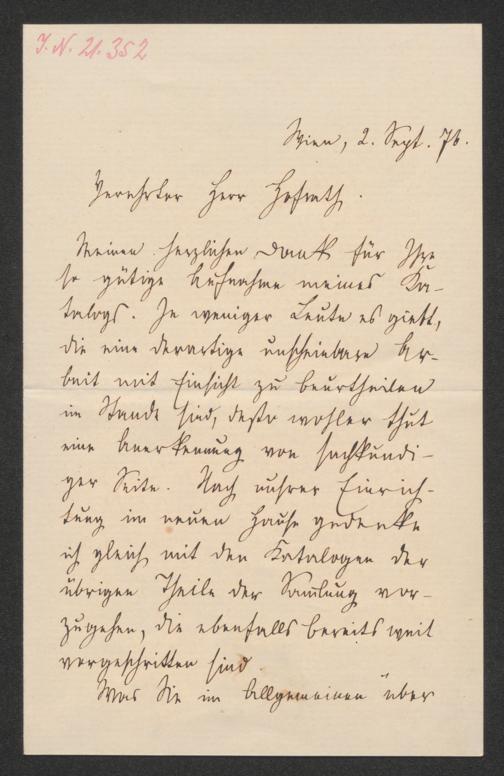 J. N. 21.352
Wien, 2. Sept. 76.
Verehrter Herr Hofrath.
Meinen herzlichen Dank für Ihre
so gütige Aufnahme meines Ka-
talogs. Je weniger Leute es giebt,
die eine derartige unscheinbare Ar-
beit mit Einsicht zu beurtheilen
im Stande sind, desto wohler thut
eine Anerkennung von sachkundi-
ger Seite. Nach unsrer Einrich-
tung im neuen Hause gedenke
ich gleich mit den Katalogen der
übrigen Theile der Samlung vor-
zugehen, die ebenfalls bereits weit
vorgeschritten sind.
Was Sie im Allgemeinen über